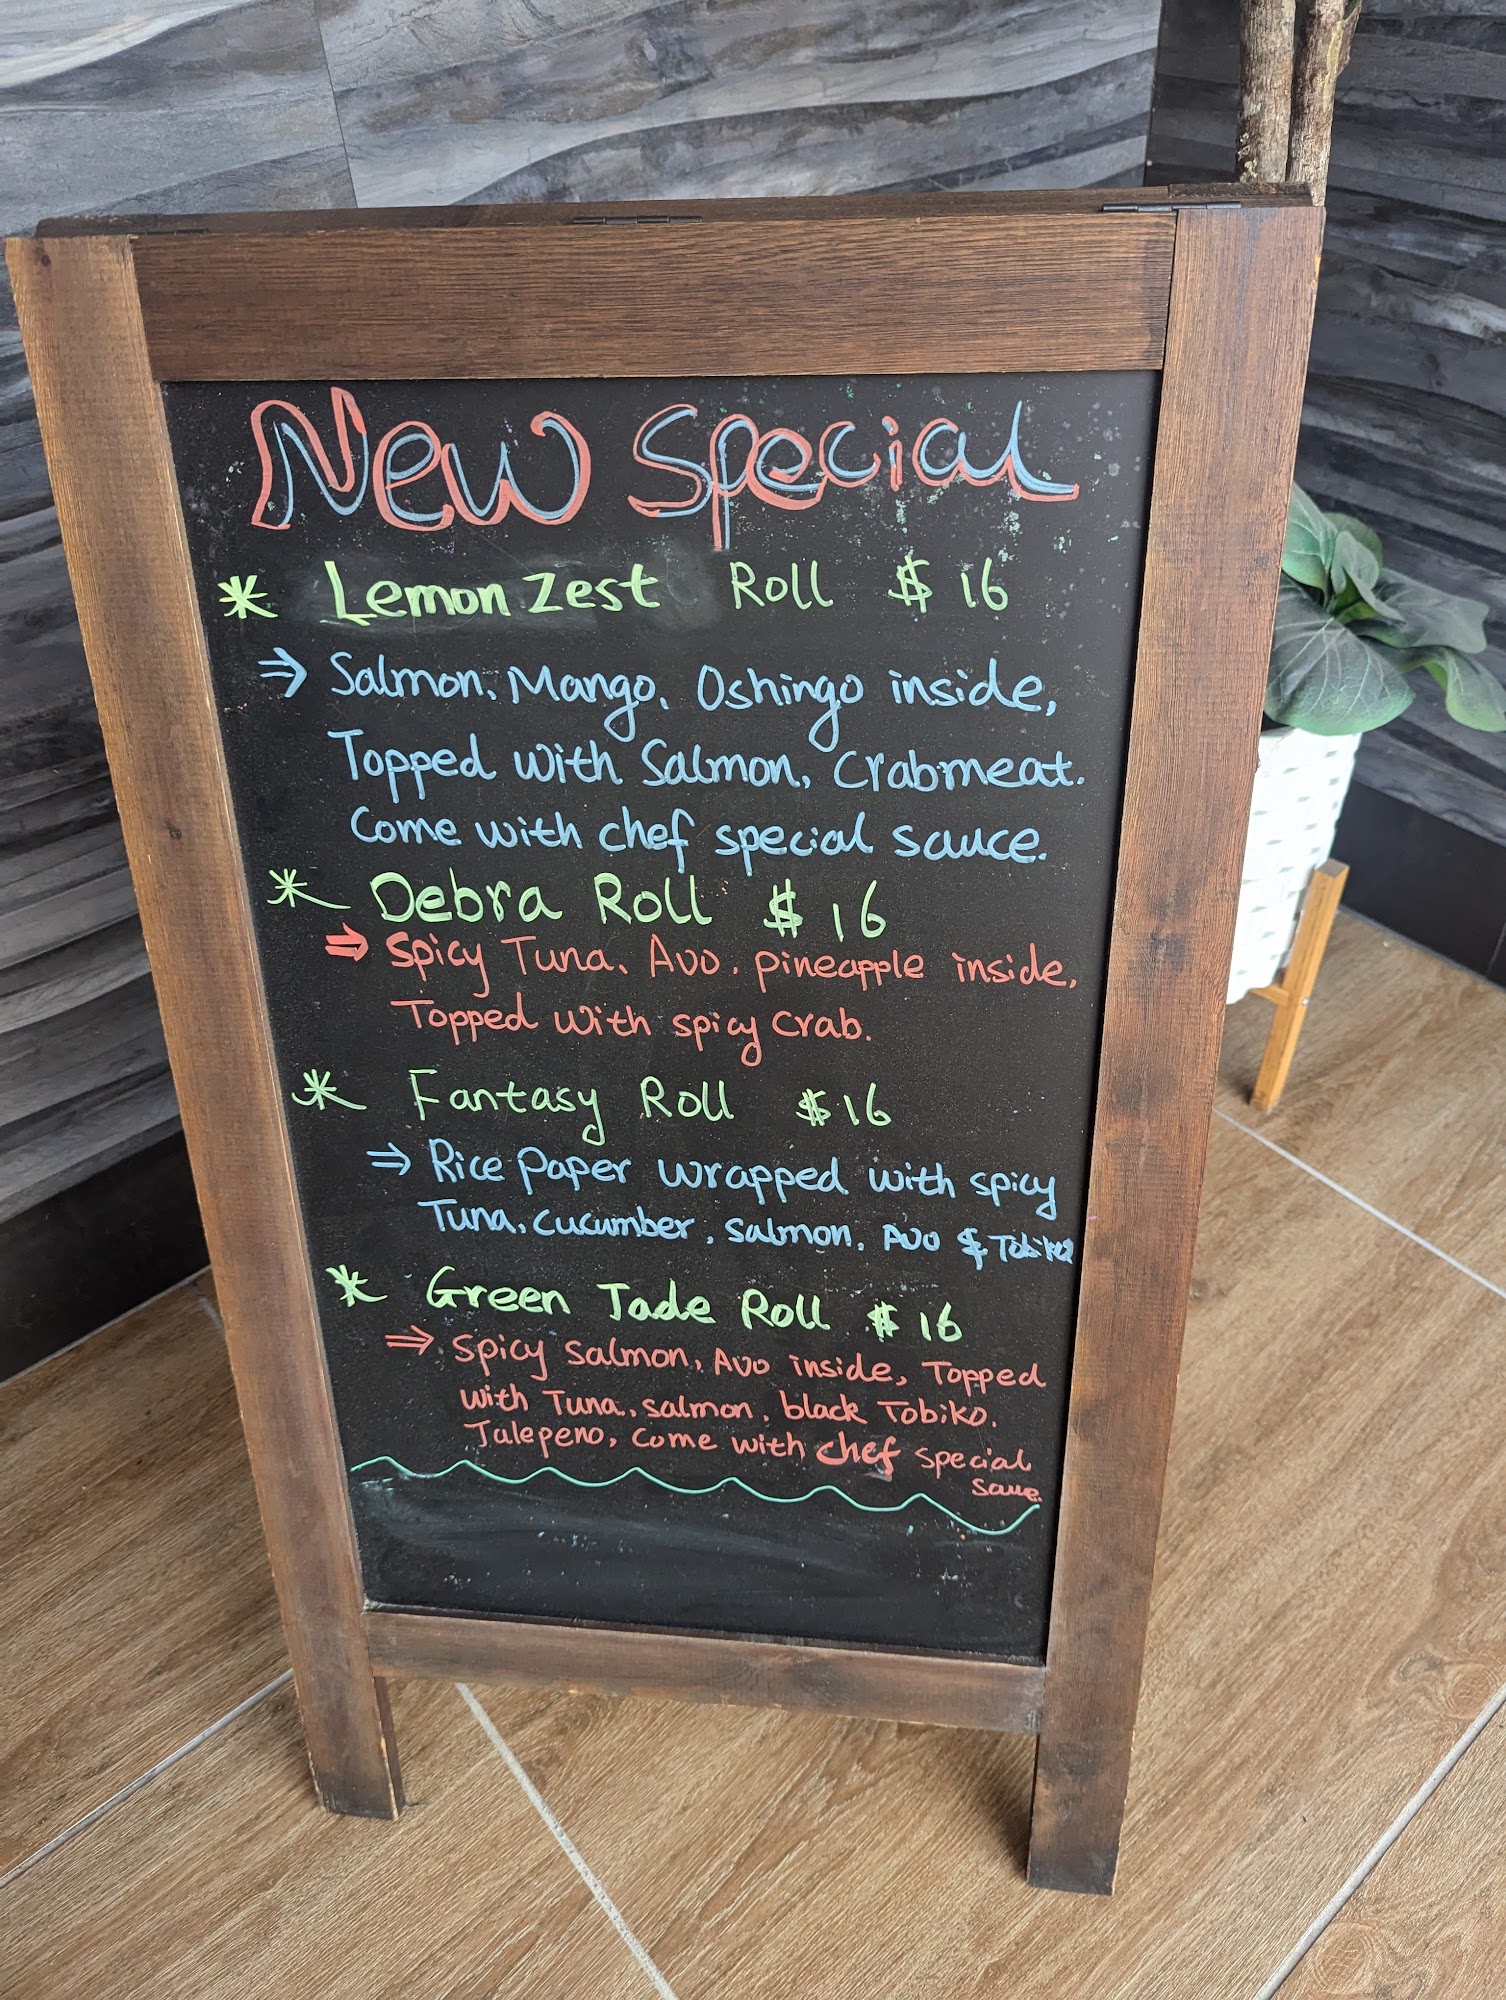 New Special
* Lemon Zest Roll $16
⇒ Salmon, Mango, Oshingo inside,
Topped with Salmon, Crabmeat.
Come with chef special sauce.
* Debra Roll $16
⇒ Spicy Tuna, Avo, pineapple inside,
Topped with spicy crab.
* Fantasy Roll $16
⇒ Rice paper wrapped with spicy
Tuna, Cucumber, salmon, Avo & Tobiko
* Green Jade Roll $16
⇒ Spicy salmon, Avo inside, Topped
with Tuna, salmon, black Tobiko,
Jalepeno, come with chef special
sauce.